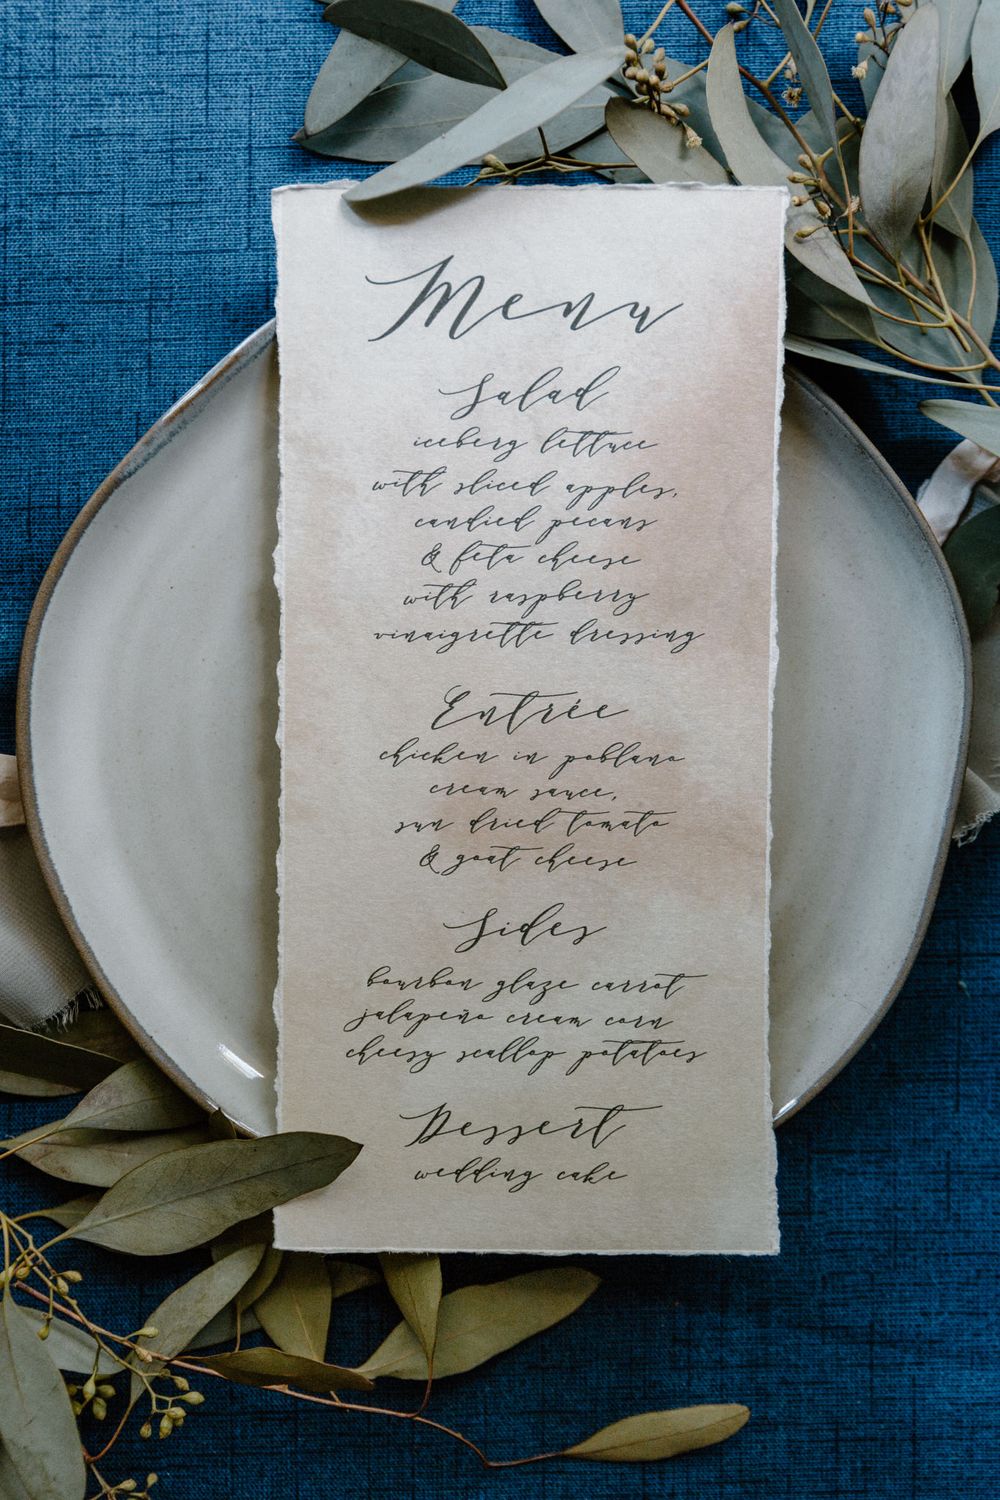 Menu
Salad
iceberg lettuce
with sliced apples,
candied pecans
& feta cheese
with raspberry
vinaigrette dressing
Entrée
chicken in poblano
cream sauce,
sun dried tomato
& goat cheese
Sides
bourbon glaze carrot
jalapeño cream corn
cheesy scallop potatoes
Dessert
wedding cake